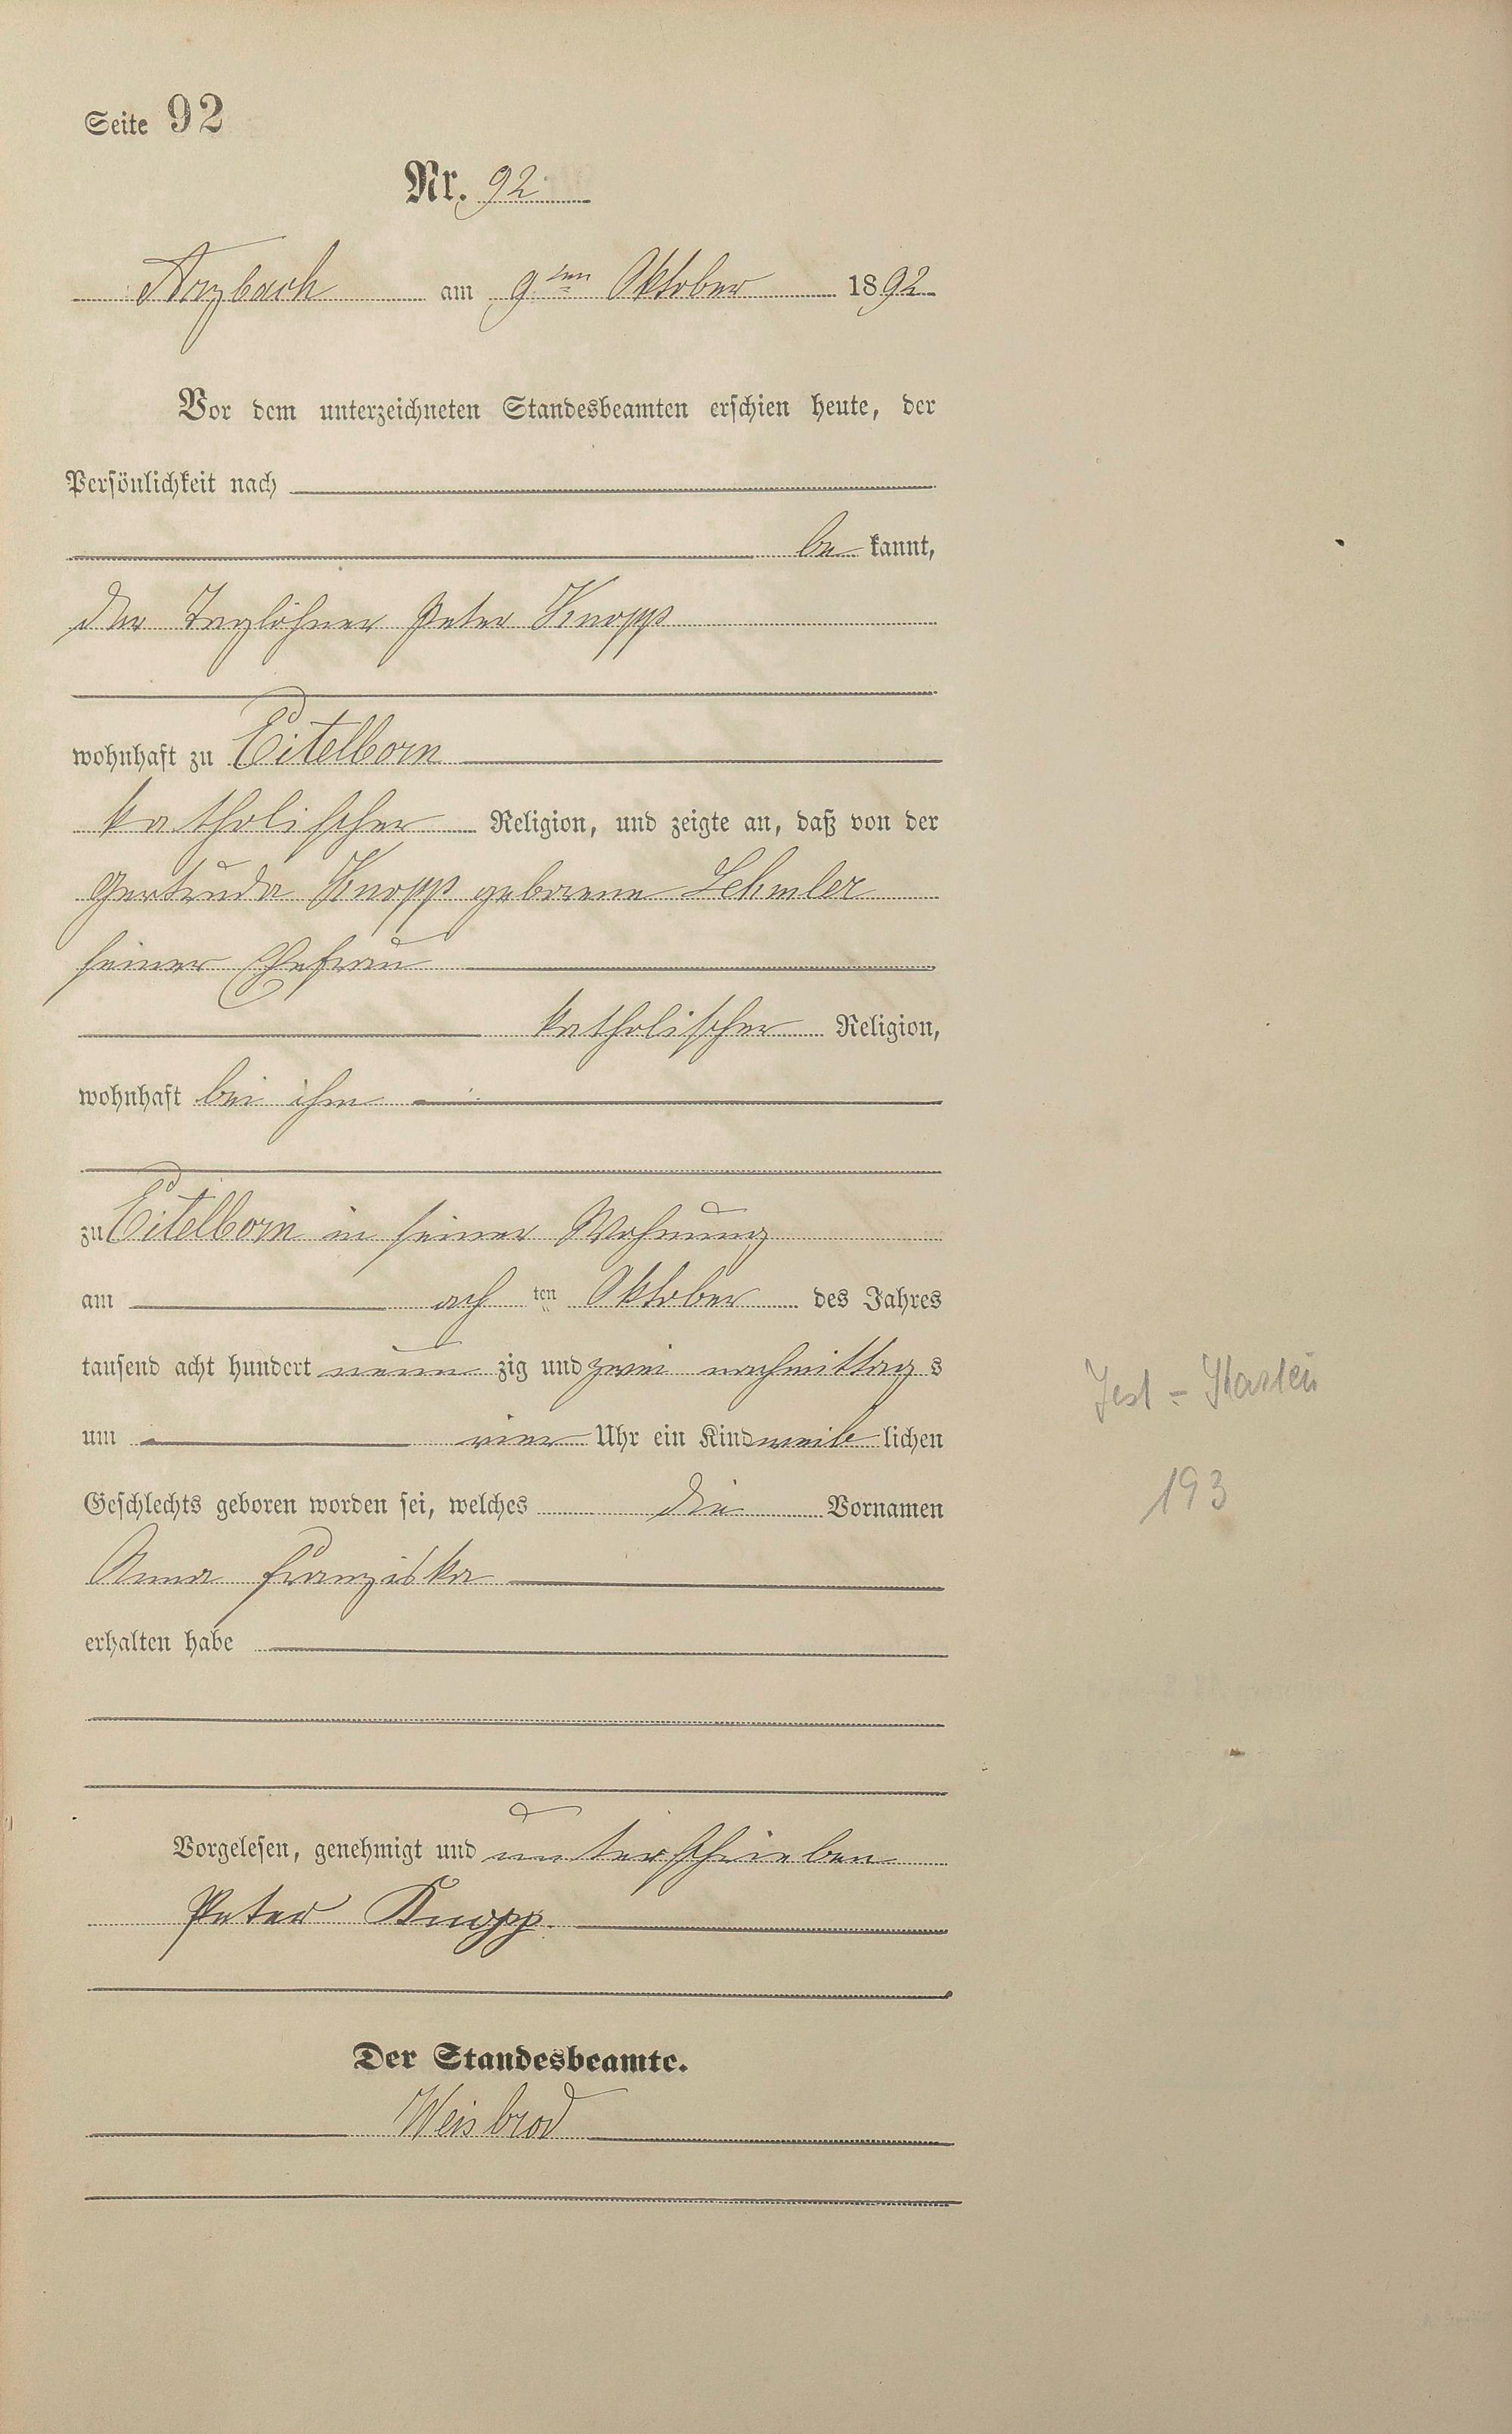 Seite 92
Nr. 92
Arzbach am 9ten Oktober 1892
Vor dem unterzeichneten Standesbeamten erschien heute, der
Persönlichkeit nach
be kannt,
der Taglöhner Peter Knopp
wohnhaft zu Eitelborn
katholischer Religion, und zeigte an, daß von der
Gertruda Knopp geborene Lehmler
seiner Ehefrau
katholischer Religion,
wohnhaft bei ihm
zu Eitelborn in seiner Wohnung
am ach ten Oktober des Jahres
tausend acht hundert neun zig und zwei nachmittag s
um vier Uhr ein Kind weib lichen
Geschlechts geboren worden sei, welches die Vornamen
Anna Franziska
erhalten habe
Vorgelesen, genehmigt und unterschrieben
Peter Knopp.
Der Standesbeamte.
Weisbrod
193